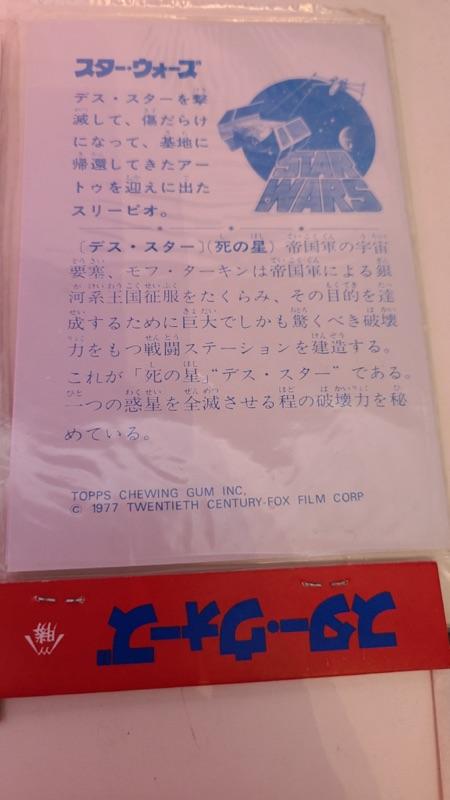 スター・ウォーズ
デス・スターを撃
滅して、傷だらけ
になって、基地に
帰還してきたアー
トゥを迎えに出た
スリーピオ。
STAR
WARS
〔デス・スター〕(死の星) 帝国軍の宇宙
要塞、モフ・ターキンは帝国軍による銀
河系王国征服をたくらみ、その目的を達
成するために巨大でしかも驚くべき破壊
力をもつ戦闘ステーションを建造する。
これが「死の星」“デス・スター”である。
一つの惑星を全滅させる程の破壊力を秘
めている。
TOPPS CHEWING GUM INC,
© 1977 TWENTIETH CENTURY-FOX FILM CORP
スター・ウォーズ
勝